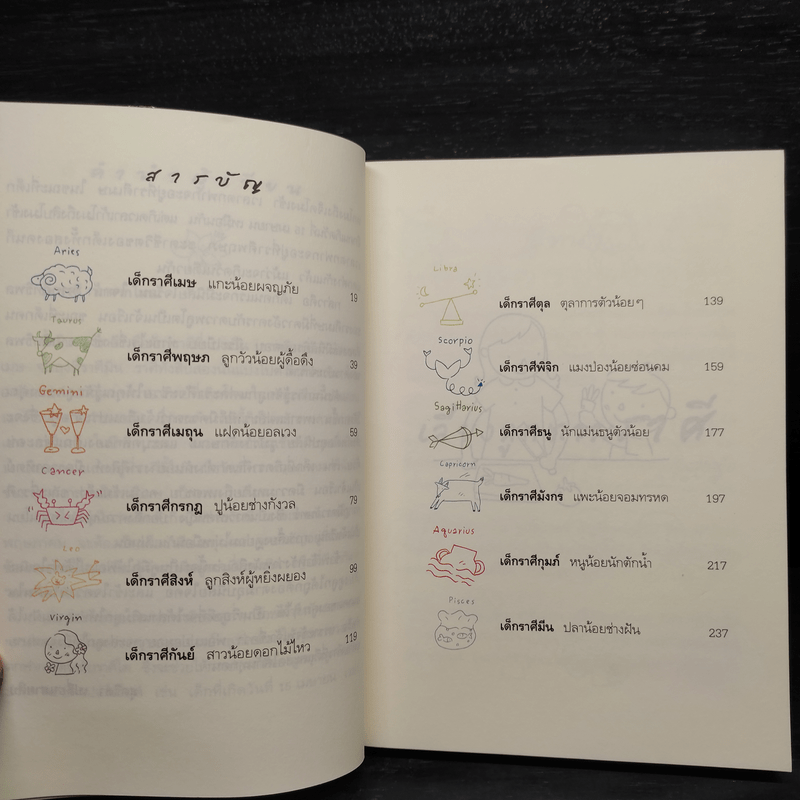 สารบัญ
Aries
เด็กราศีเมษ แกะน้อยผจญภัย 19
Taurus
เด็กราศีพฤษภ ลูกวัวน้อยผู้ดื้อดึง 39
Gemini
เด็กราศีเมถุน แฝดน้อยอลเวง 59
Cancer
เด็กราศีกรกฎ ปูน้อยช่างกังวล 79
Leo
เด็กราศีสิงห์ ลูกสิงห์ผู้หยิ่งผยอง 99
Virgin
เด็กราศีกันย์ สาวน้อยดอกไม้ไหว 119
Libra
เด็กราศีตุล ตุลาการตัวน้อยๆ 139
Scorpio
เด็กราศีพิจิก แมงป่องน้อยซ่อนคม 159
Sagittarius
เด็กราศีธนู นักแม่นธนูตัวน้อย 177
Capricorn
เด็กราศีมังกร แพะน้อยจอมทรหด 197
Aquarius
เด็กราศีกุมภ์ หนูน้อยนักตักน้ำ 217
Pisces
เด็กราศีมีน ปลาน้อยช่างฝัน 237